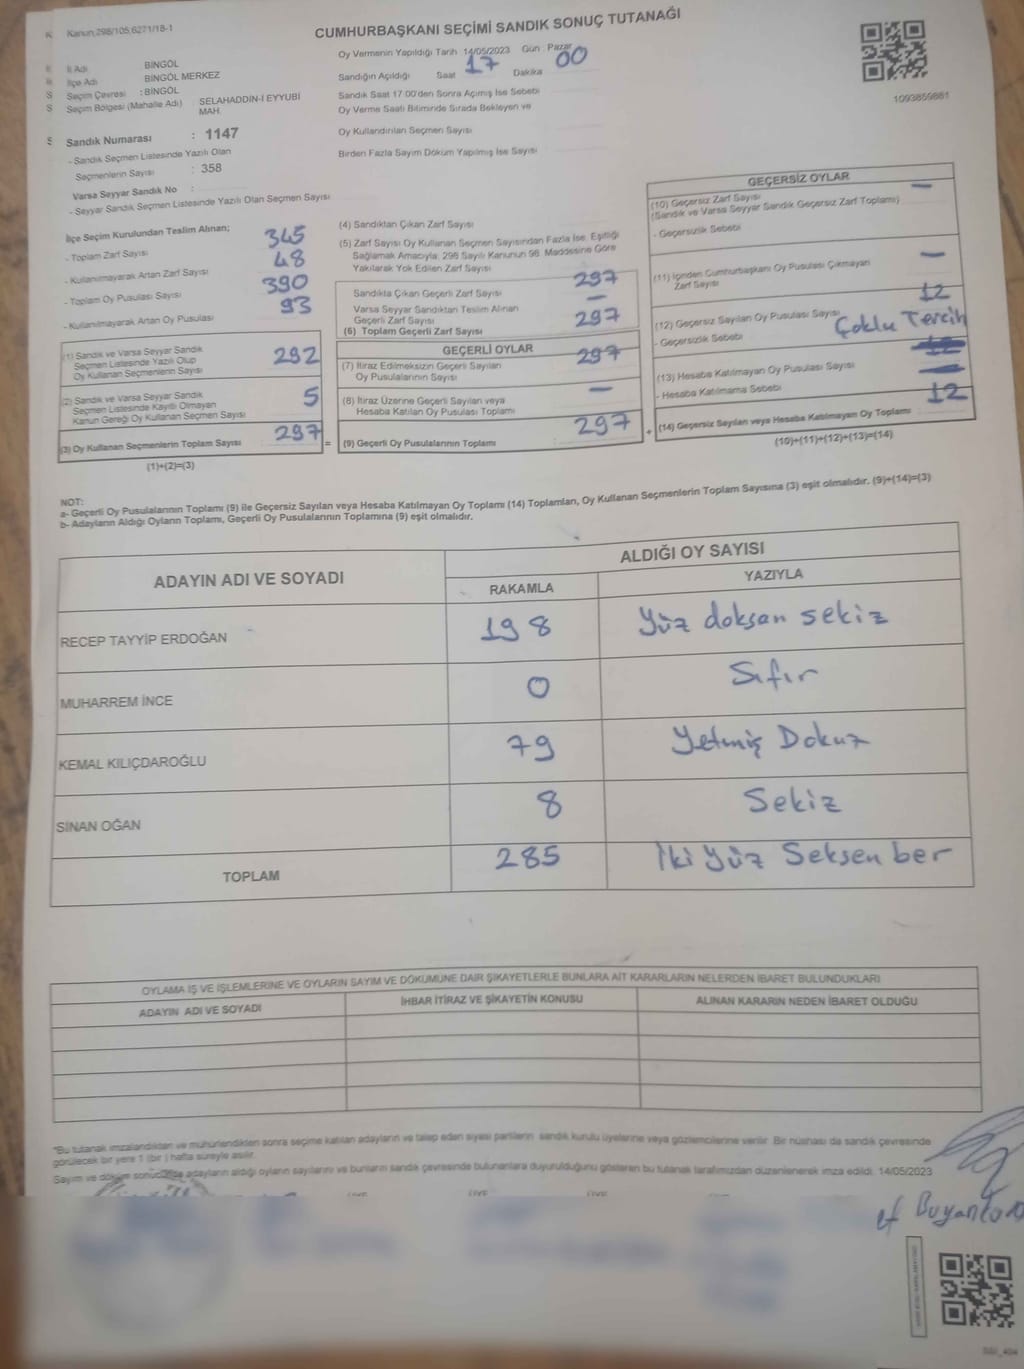 Kanun;298/105;6271/18-1
CUMHURBAŞKANI SEÇİMİ SANDIK SONUÇ TUTANAĞI
İl Adı BİNGÖL
İlçe Adı BİNGÖL MERKEZ
Seçim Çevresi : BİNGÖL
Seçim Bölgesi (Mahalle Adı) SELAHADDİN-İ EYYUBİ MAH.
Sandık Numarası : 1147
- Sandık Seçmen Listesinde Yazılı Olan
Seçmenlerin Sayısı : 358
Varsa Seyyar Sandık No :
- Seyyar Sandık Seçmen Listesinde Yazılı Olan Seçmen Sayısı
Oy Vermenin Yapıldığı Tarih 14/05/2023 Gün Pazar
Sandığın Açıldığı Saat 17 Dakika 00
Sandık Saat 17:00'den Sonra Açımış İse Sebebi
Oy Verme Saati Bitiminde Sırada Bekleyen ve
Oy Kullandırılan Seçmen Sayısı
Birden Fazla Sayım Döküm Yapılmış İse Sayısı
1093859881
İlçe Seçim Kurulundan Teslim Alınan;
- Toplam Zarf Sayısı 345
- Kullanılmayarak Artan Zarf Sayısı 48
- Toplam Oy Pusulası Sayısı 390
- Kullanılmayarak Artan Oy Pusulası 93
(1) Sandık ve Varsa Seyyar Sandık
Seçmen Listesinde Yazılı Olup
Oy Kullanan Seçmenlerin Sayısı 292
(2) Sandık ve Varsa Seyyar Sandık
Seçmen Listesinde Kayıtlı Olmayan
Kanun Gereği Oy Kullanan Seçmen Sayısı 5
(3) Oy Kullanan Seçmenlerin Toplam Sayısı 297
(1)+(2)=(3)
(4) Sandıktan Çıkan Zarf Sayısı
(5) Zarf Sayısı Oy Kullanan Seçmen Sayısından Fazla İse, Eşitliği
Sağlamak Amacıyla; 298 Sayılı Kanunun 98. Maddesine Göre
Yakılarak Yok Edilen Zarf Sayısı
Sandıkta Çıkan Geçerli Zarf Sayısı 297
Varsa Seyyar Sandıktan Teslim Alınan
Geçerli Zarf Sayısı —
(6) Toplam Geçerli Zarf Sayısı 297
GEÇERLİ OYLAR
(7) İtiraz Edilmeksizin Geçerli Sayılan
Oy Pusulalarının Sayısı 297
(8) İtiraz Üzerine Geçerli Sayılan veya
Hesaba Katılan Oy Pusulası Toplamı —
= (9) Geçerli Oy Pusulalarının Toplamı 297
GEÇERSİZ OYLAR
(10) Geçersiz Zarf Sayısı —
(Sandık ve Varsa Seyyar Sandık Geçersiz Zarf Toplamı)
- Geçersizlik Sebebi
(11) İçinden Cumhurbaşkanı Oy Pusulası Çıkmayan
Zarf Sayısı —
(12) Geçersiz Sayılan Oy Pusulası Sayısı 12
- Geçersizlik Sebebi Çoklu Tercih
(13) Hesaba Katılmayan Oy Pusulası Sayısı
- Hesaba Katılmama Sebebi —
+ (14) Geçersiz Sayılan veya Hesaba Katılmayan Oy Toplamı 12
(10)+(11)+(12)+(13)=(14)
NOT:
a- Geçerli Oy Pusulalarının Toplamı (9) ile Geçersiz Sayılan veya Hesaba Katılmayan Oy Toplamı (14) Toplamları, Oy Kullanan Seçmenlerin Toplam Sayısına (3) eşit olmalıdır. (9)+(14)=(3)
b- Adayların Aldığı Oyların Toplamı, Geçerli Oy Pusulalarının Toplamına (9) eşit olmalıdır.
ADAYIN ADI VE SOYADI ALDIĞI OY SAYISI
RAKAMLA YAZIYLA
RECEP TAYYİP ERDOĞAN 198 Yüz doksan sekiz
MUHARREM İNCE 0 Sıfır
KEMAL KILIÇDAROĞLU 79 Yetmiş Dokuz
SİNAN OĞAN 8 Sekiz
TOPLAM 285 İki Yüz Seksen ber
OYLAMA İŞ VE İŞLEMLERİNE VE OYLARIN SAYIM VE DÖKÜMÜNE DAİR ŞİKAYETLERLE BUNLARA AİT KARARLARIN NELERDEN İBARET BULUNDUKLARI
ADAYIN ADI VE SOYADI İHBAR İTİRAZ VE ŞİKAYETİN KONUSU ALINAN KARARIN NEDEN İBARET OLDUĞU
"Bu tutanak imzalandıktan ve mühürlendikten sonra seçime katılan adayların ve talep eden siyasi partilerin sandık kurulu üyelerine veya gözlemcilerine verilir. Bir nüshası da sandık çevresinde
görülecek bir yere 1 (bir ) hafta süreyle asılır.
Sayım ve döküm sonucunda adayların aldığı oyların sayılarını ve bunların sandık çevresinde bulunanlara duyurulduğunu gösteren bu tutanak tarafımızdan düzenlenerek imza edildi. 14/05/2023